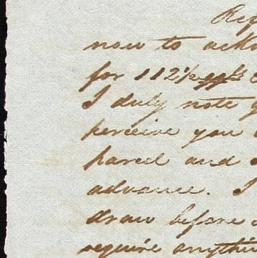 now to
for 112½
I duly note
perceive you
pared and
advance. I
draw before
require anything